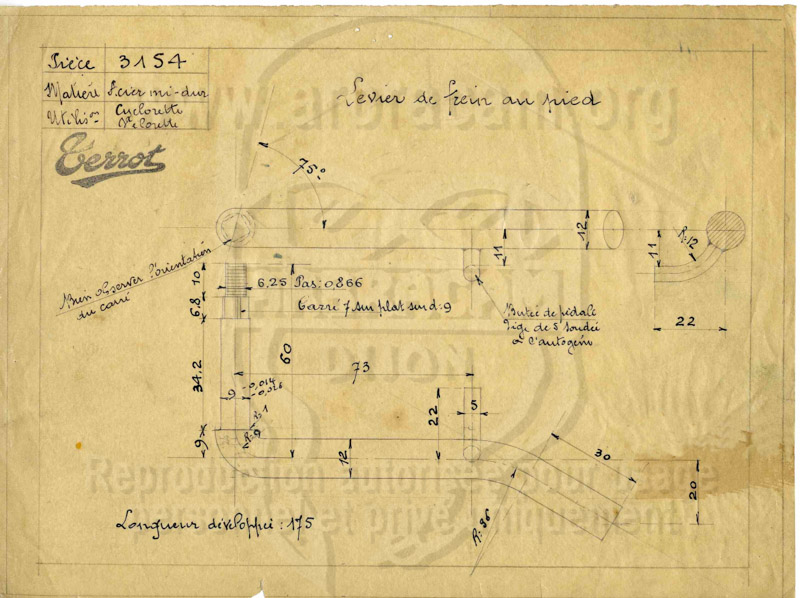 Pièce 3154
Matière Acier mi-dur
Utilison Cyclorette
Vélorette
Terrot
Levier de frein au pied
75°
Bien observer l'orientation
du carré
10
6,8
34,2
9
6,25 Pas: 0,866
Carré 7 sur plat sur d: 9
60
73
9 -0,014
-0,026
R: 1
R: 9
12
11
12
Butée de pédale
Tige de 5 soudée
à l'autogène
11
R: 12
22
22
5
30
20
R: 36
Longueur développée: 175
DIJON
Reproduction autorisée pour usage
personnel et privé uniquement